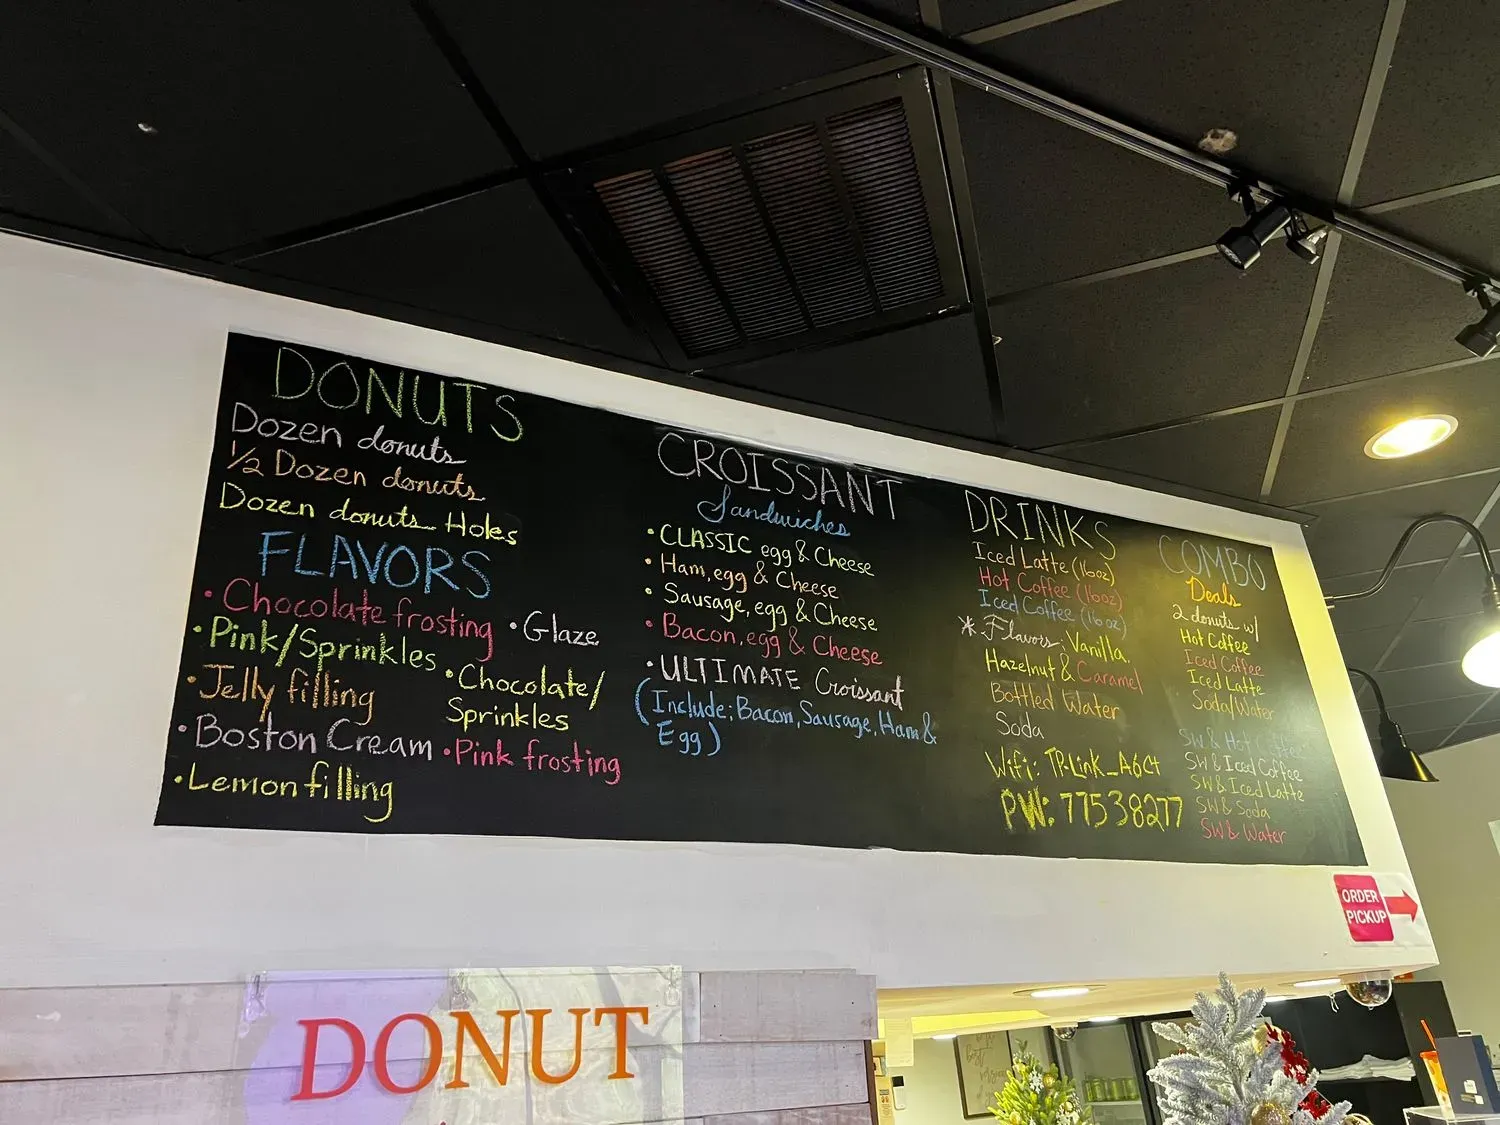 DONUTS
Dozen donuts
1/2 Dozen donuts
Dozen donuts Holes
FLAVORS
• Chocolate frosting
• Glaze
• Pink/Sprinkles
• Chocolate/
Sprinkles
• Jelly filling
• Boston Cream
• Pink frosting
• Lemon filling
CROISSANT
Sandwiches
• CLASSIC egg & Cheese
• Ham, egg & Cheese
• Sausage, egg & Cheese
• Bacon, egg & Cheese
• ULTIMATE Croissant
(Include; Bacon, Sausage, Ham &
Egg)
DRINKS
Iced Latte (16oz)
Hot Coffee (16oz)
Iced Coffee (16oz)
* Flavors: Vanilla.
Hazelnut & Caramel
Bottled Water
Soda
Wifi: TP-Link_A6C4
PW: 77538277
COMBO
Deals
2 donuts w/
Hot Coffee
Iced Coffee
Iced Latte
Soda/Water
SW & Hot Coffee
SW & Iced Coffee
SW & Iced Latte
SW & Soda
SW & Water
ORDER
PICKUP
DONUT